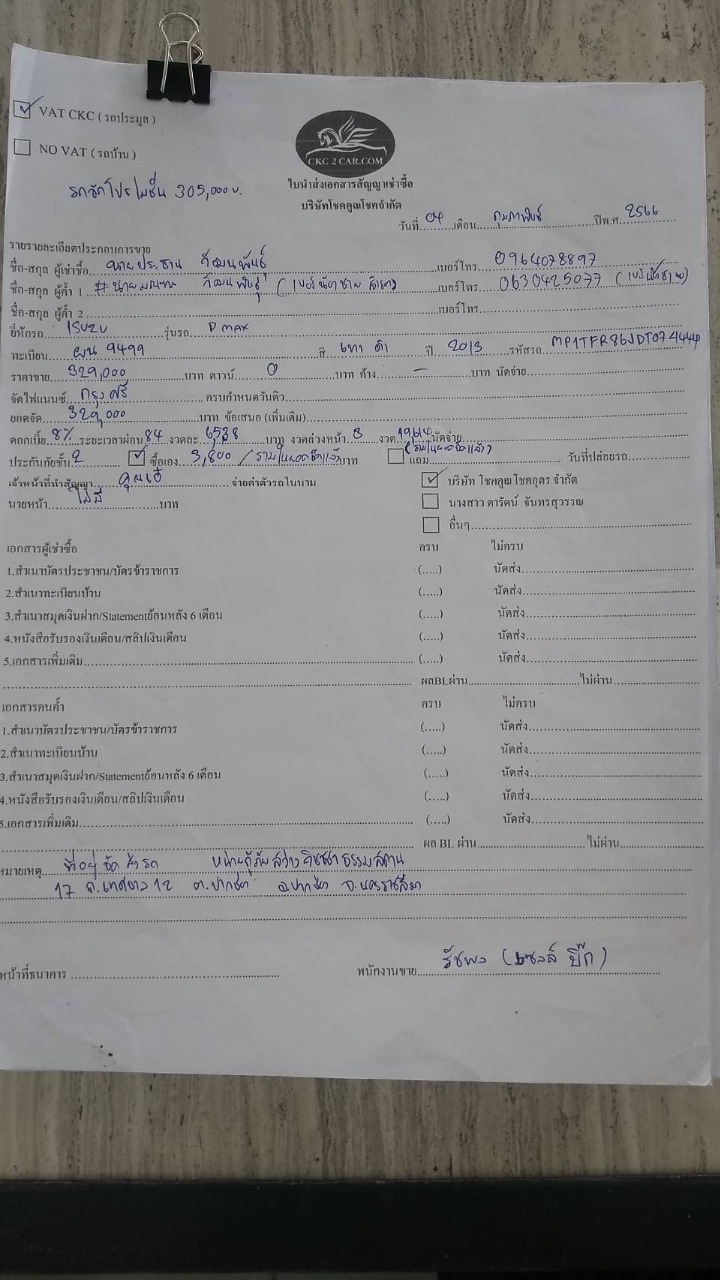 VAT CKC ( รถประมูล )
NO VAT ( รถบ้าน )
CKC 2 CAR.COM
ใบนำส่งเอกสารสัญญาเช่าซื้อ
บริษัทโชคคูณโชคจำกัด
305,000 บ.
วันที่ 04 เดือน กุมภาพันธ์ ปีพ.ศ. 2566
รายรายละเอียดประกอบการขาย
ชื่อ-สกุล ผู้เช่าซื้อ นายประธาน วัฒนพันธุ์ เบอร์โทร 0964078897
ชื่อ-สกุล ผู้ค้ำ 1 # วัฒนพันธุ์ เบอร์โทร 0630425077
ชื่อ-สกุล ผู้ค้ำ 2 เบอร์โทร
ยี่ห้อรถ ISUZU รุ่นรถ D max
ทะเบียน ผน 9499 สี เทา ดำ ปี 2013 รหัสรถ
ราคาขาย 329,000 บาท ดาวน์ 0 บาท ค้าง - บาท นัดจ่าย
จัดไฟแนนซ์ กรุงศรี ครบกำหนดวันดิว
ยอดจัด 329,000 บาท ข้อเสนอ (เพิ่มเติม)
ดอกเบี้ย 8% ระยะเวลาผ่อน 84 งวดละ 6,538 บาท งวดล่วงหน้า 3 งวด นัดจ่าย
ประกันภัยชั้น 2 ซื้อเอง 3,800 / บาท แถม วันที่ปล่อยรถ
เจ้าหน้าที่ทำสัญญา จ่ายค่าตัวรถในนาม บริษัท โชคคูณโชคอุดร จำกัด
นายหน้า ไม่มี บาท นางสาว ดารัตน์ จันทรสุวรรณ
อื่นๆ
เอกสารผู้เช่าซื้อ ครบ ไม่ครบ
1.สำเนาบัตรประชาชน/บัตรข้าราชการ (.....) นัดส่ง
2.สำเนาทะเบียนบ้าน (.....) นัดส่ง
3.สำเนาสมุดเงินฝาก/Statementย้อนหลัง 6 เดือน (.....) นัดส่ง
4.หนังสือรับรองเงินเดือน/สลิปเงินเดือน (.....) นัดส่ง
5.เอกสารเพิ่มเติม (.....) นัดส่ง
ผลBLผ่าน ไม่ผ่าน
เอกสารคนค้ำ ครบ ไม่ครบ
1.สำเนาบัตรประชาชน/บัตรข้าราชการ (.....) นัดส่ง
2.สำเนาทะเบียนบ้าน (.....) นัดส่ง
3.สำเนาสมุดเงินฝาก/Statementย้อนหลัง 6 เดือน (.....) นัดส่ง
4.หนังสือรับรองเงินเดือน/สลิปเงินเดือน (.....) นัดส่ง
5.เอกสารเพิ่มเติม (.....) นัดส่ง
ผล BL ผ่าน ไม่ผ่าน
หมายเหตุ ที่อยู่ จัด ส่ง รถ หน่วยกู้ภัยสว่างวิชชาธรรมสถาน
17 ถ.เทศบาล 12 ต.ปากช่อง อ.ปากช่อง จ.นครราชสีมา
หน้าที่ธนาคาร พนักงานขาย รัชพล (เซลล์ บิ๊ก)